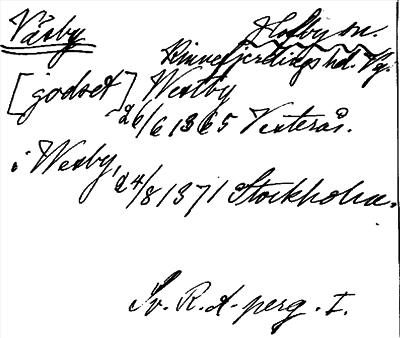 Väsby Holby sn.
Kinnefjerdings hd. Vg.
[godset] Wesby
26/6 1365 Vesterås.
i Wesby, 24/8 1371 Stockholm.
Sv. R.d. perg. I.